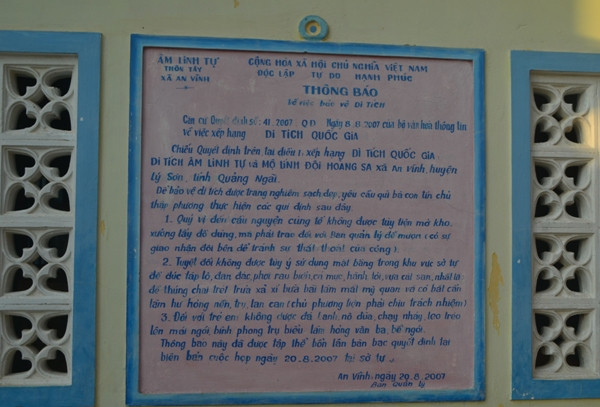 ÂM LINH TỰ
THÔN TÂY
XÃ AN VĨNH
CỘNG HÒA XÃ HỘI CHỦ NGHĨA VIỆT NAM
ĐỘC LẬP TỰ DO HẠNH PHÚC
THÔNG BÁO
Về việc bảo vệ DI TÍCH
Căn cứ Quyết định số: 41.2007. QĐ Ngày 8.8.2007 của bộ văn hóa thông tin
về việc xếp hạng DI TÍCH QUỐC GIA
Chiếu Quyết định trên, tại điều 1: xếp hạng DI TÍCH QUỐC GIA
DI TÍCH ÂM LINH TỰ và MỘ LÍNH ĐỘI HOÀNG SA xã AN VĨNH, huyện
Lý Sơn, tỉnh Quảng Ngãi
Để bảo vệ di tích được trang nghiêm sạch đẹp, yêu cầu quí bà con tín chủ
thập phương thực hiện các qui định sau đây
1. Quý vị đến cầu nguyện cúng tế không được tùy tiện mở kho,
xuống lấy đồ dùng, mà phải trao đổi với Ban quản lý để mượn (có sự
giao nhận đôi bên để tránh sự thất thoát của công).
2. Tuyệt đối không được tùy ý sử dụng mặt bằng trong khu vực sở tự
để đúc táp lô, đan, đác, phơi rau buối, cá mực, hành, tỏi, vựa cát sạn, nhất là:
để thúng chai trét trưa xả xỉ bừa bãi làm mất mỹ quan và có bất cẩn
làm hư hỏng nền, trụ, lan can (chủ phương tiện phải chịu trách nhiệm)
3. Đối với trẻ em: không được đá banh, nô đùa, chạy nhảy, leo trèo
lên mái ngói, bình phong trụ biểu làm hỏng văn ba, bể ngói.
Thông báo này đã được tập thể bổn lân bàn bạc quyết định tại
biên bản cuộc họp ngày 20.8.2007 tại sở tự
An Vĩnh, ngày 29.8.2007
Ban Quản lý